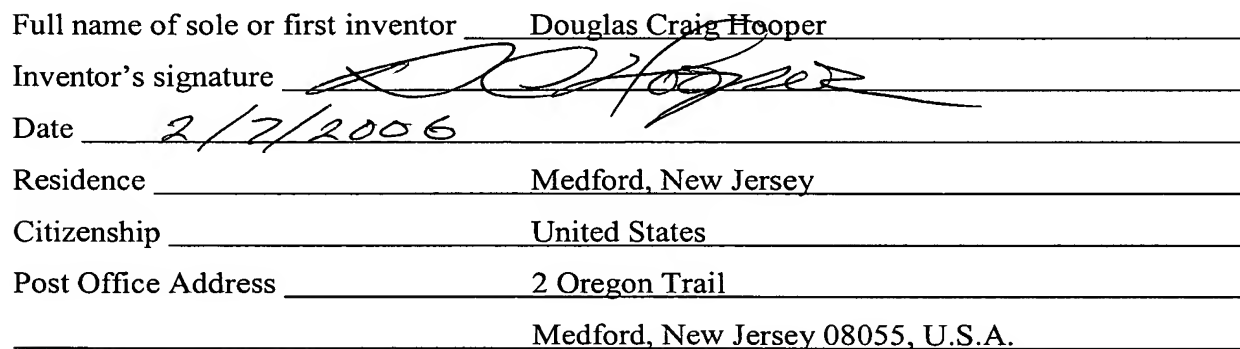 Full name of sole or first inventor Douglas Craig Hooper
Inventor's signature DCHooper
Date 2/7/2006
Residence Medford, New Jersey
Citizenship United States
Post Office Address 2 Oregon Trail
Medford, New Jersey 08055, U.S.A.